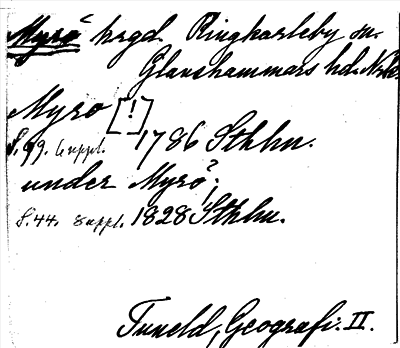 Myrö hrgd. Ringkarleby sn.
Glanshammars hd. Nrke.
Myro [!]
S. 99. 6 uppl. 1786 Sthlm.
under Myrö?;
S. 44. 8 uppl. 1828 Sthlm.
Tuneld, Geografi. II.